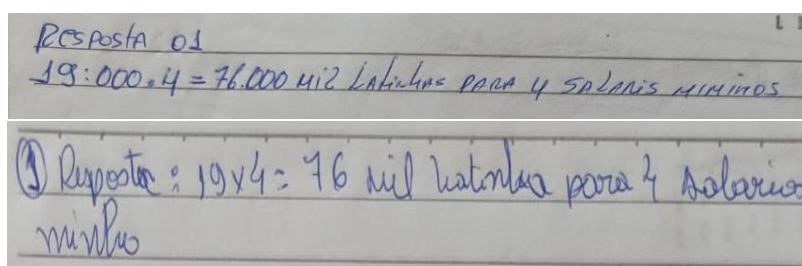 Resposta 01
19:000.4 = 76.000 mil Latinhas PARA 4 SALARIS MIMINOS
① Resposta: 19x4= 76 mil Latinha para 4 salarios
minimo